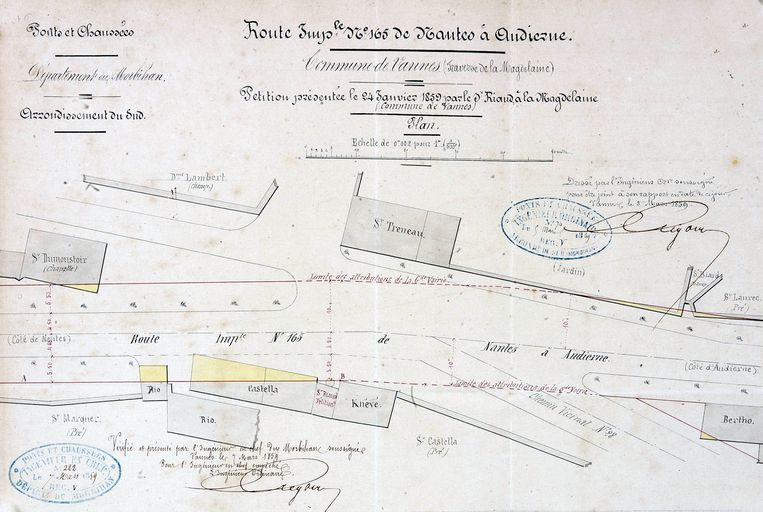 Ponts et Chaussées
Département du Morbihan.
Arrondissement du Sud.
Route Imp.le N.º 165 de Nantes à Audierne.
Commune de Vannes (Traverse de la Magdelaine)
Pétition présentée le 24 Janvier 1859 par le Sr Riaud à la Magdelaine
(Commune de Vannes)
Plan.
Echelle de 0m 002 pour 1m.
Dressé par l'Ingénieur Ord.re soussigné
pour être joint à son rapport en date de ce jour
Vannes, le 5 Mars 1859
PONTS ET CHAUSSÉES
INGÉNIEUR ORDINAIRE
Le 5 Mars 1859
REG. V
Dme Lambert.
(Champ)
Sr Treneau.
Sr Dumoustoir
(Chapelle)
(Jardin)
Sr Riaud
Sr Lauvec.
(Pré)
Limite des attributions de la Gde Voirie
(Côté de Nantes)
Route Imp.le N.º 165 de Nantes à Audierne.
(Côté d'Audierne.)
A
B
Limite des attributions de la Gde Voirie.
Chemin Vicinal
Rio
Castella
Sr Riaud
Pétit.re
Knévé.
Rio.
Bertho.
Sr Marquer.
(Pré)
Sr Castella
(Pré)
Vérifié et présenté par l'Ingénieur en chef du Morbihan soussigné
Vannes le 7 Mars 1859
Pour l'Ingénieur en chef empêché
L'Ingénieur Ordinaire
PONTS ET CHAUSSÉES
INGÉNIEUR EN CHEF
Nº 222
Le 7 Mars 1859
REG. V
DÉPt DU MORBIHAN